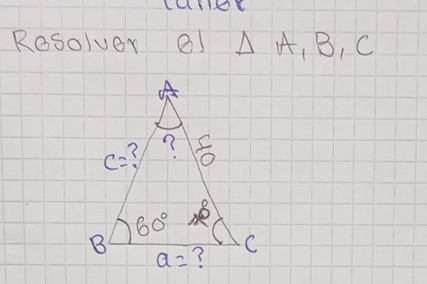 Taller
Resolver el Δ A, B, C
A
?
c=?
B
60°
C
a=?